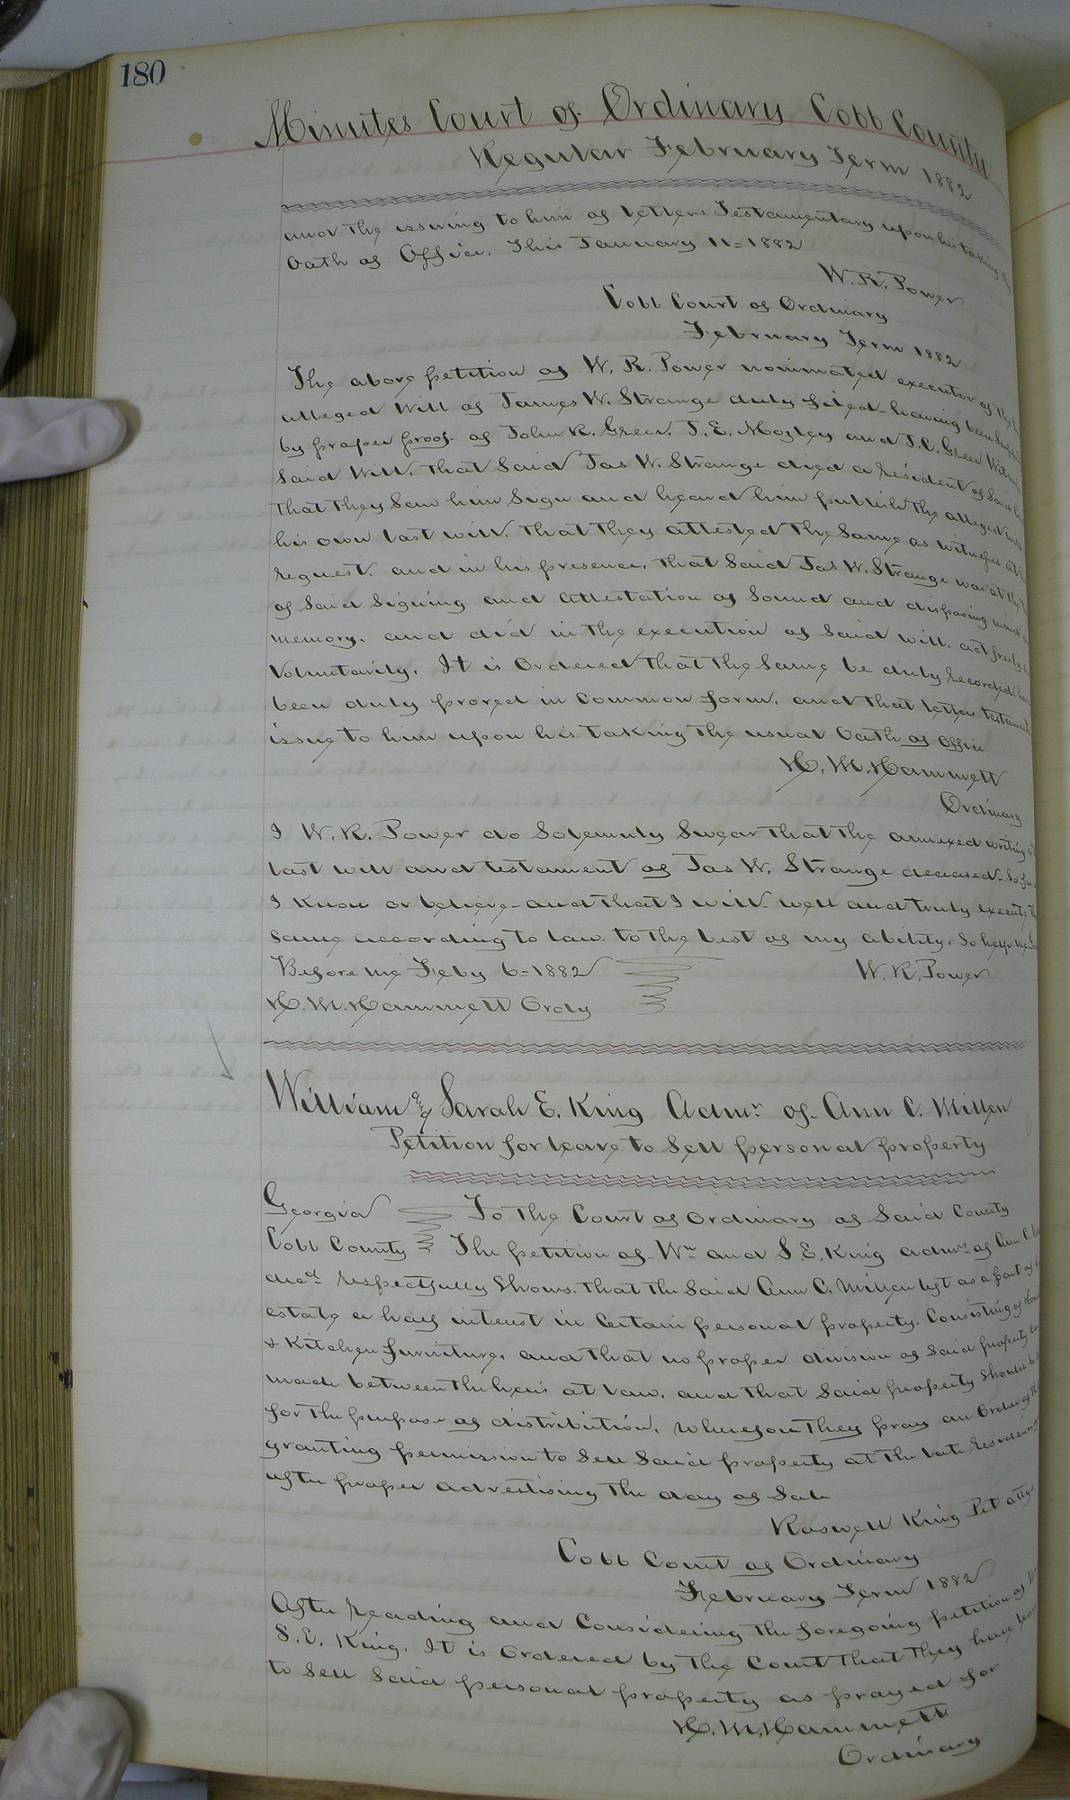 180
Minutes Court of Ordinary Cobb County
Regular February Term 1882
and the issuing to him of letters Testamentary upon his taking the
Oath of Office. This January 11=1882
W. R. Power
Cobb Court of Ordinary
February Term 1882
The above petition of W. R. Power nominated executor of the
alleged Will of James W. Strange duly filed having been
by proper proof of John R. Green. T. E. Mozley and J. C. Green
Said Will. That Said Jas W. Strange died a resident of Said
that they Saw him Sign and heard him publish the alleged
his own last will. That they attested the Same as witnesses at
request. and in his presence. That Said Jas W. Strange was at the
of Said Signing and attestation of Sound and disposing mind
memory. and did in the execution of Said will. act freely
Voluntarily. It is Ordered that the Same be duly recorded
been duly proved in common form. and that letters
issue to him upon his taking the usual Oath of Office
H. M. Hammett
Ordinary
I W. R. Power do Solemnly Swear that the annexed writing
last will and testament of Jas W. Strange deceased. So far
I know or believe and that I will well and truly execute the
Same according to law. to the best of my ability. So help me
Before me Feby 6=1882 W. R. Power
H. M. Hammett Ordy
William & Sarah E. King Admrs of Ann C. Millen
Petition for leave to Sell personal property
Georgia To The Court of Ordinary of Said County
Cobb County The petition of Wm and S. E. King admrs of Ann C.
decd respectfully Shows. That the Said Ann C. Millen left as a part of
estate a half interest in Certain personal property. Consisting of
& Kitchen furniture. and that no proper division of Said property
made between the heirs at law. and that Said property Should be
for the purpose of distribution. Wherefore they pray an Order
granting permission to Sell Said property at the late residence
after proper advertising the day of Sale
Roswell King Pet atty
Cobb Court of Ordinary
February Term 1882
After reading and Considering the foregoing petition of
S. E. King. It is Ordered by the Court that they have
to Sell Said personal property as prayed for
H. M. Hammett
Ordinary